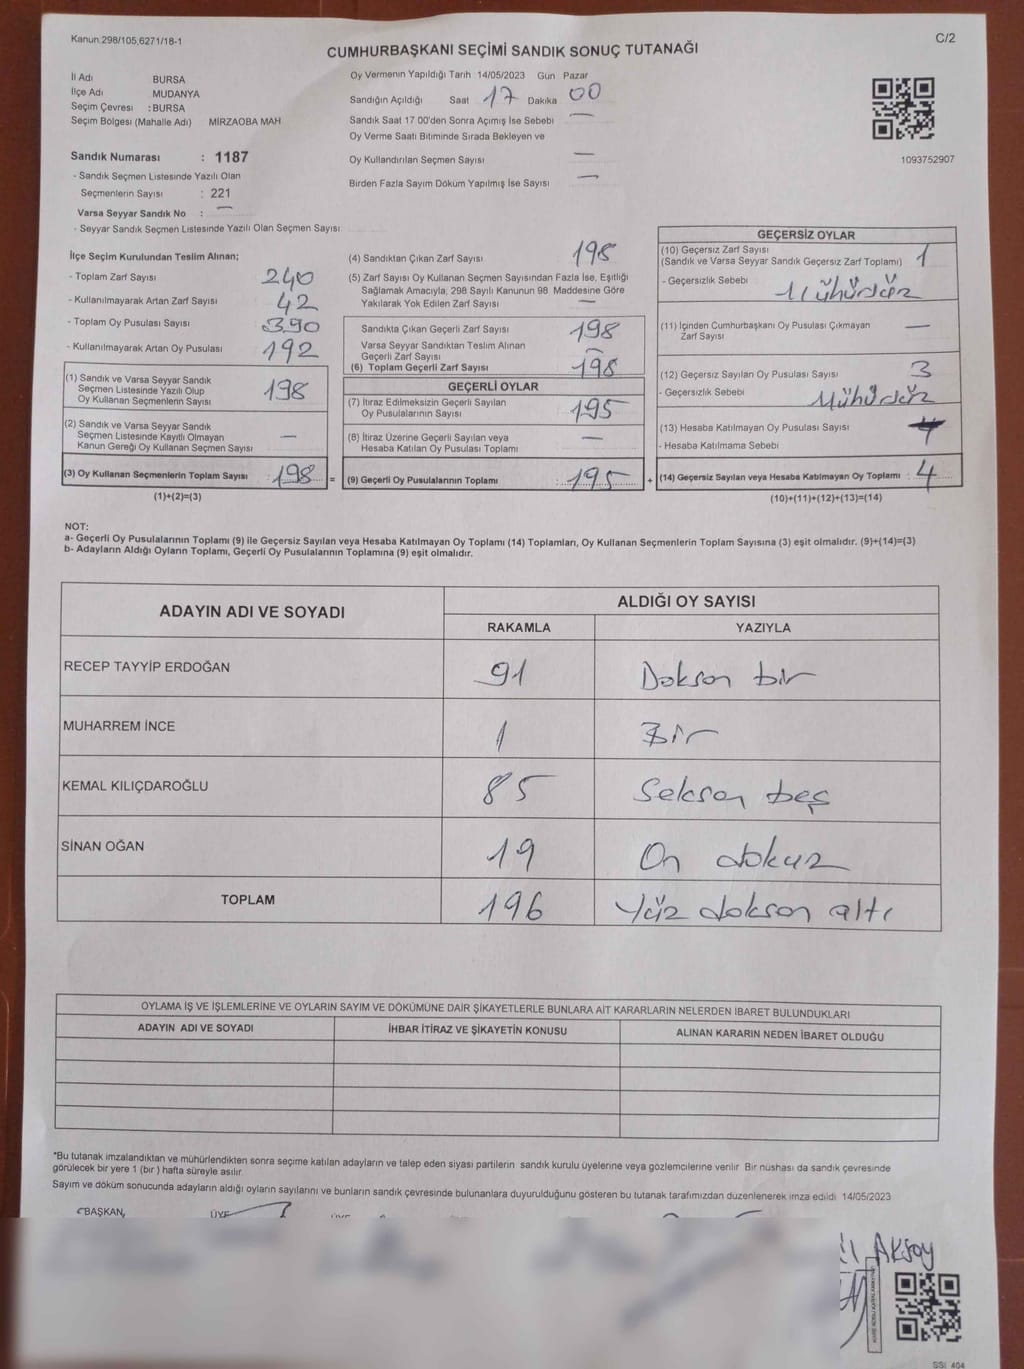 Kanun.298/105,6271/18-1
C/2
CUMHURBAŞKANI SEÇİMİ SANDIK SONUÇ TUTANAĞI
İl Adı BURSA
İlçe Adı MUDANYA
Seçim Çevresi : BURSA
Seçim Bölgesi (Mahalle Adı) MİRZAOBA MAH
Sandık Numarası : 1187
- Sandık Seçmen Listesinde Yazılı Olan
Seçmenlerin Sayısı : 221
Varsa Seyyar Sandık No : —
- Seyyar Sandık Seçmen Listesinde Yazılı Olan Seçmen Sayısı
Oy Vermenin Yapıldığı Tarih 14/05/2023 Gün Pazar
Sandığın Açıldığı Saat 17 Dakika 00
Sandık Saat 17 00'den Sonra Açımış İse Sebebi —
Oy Verme Saati Bitiminde Sırada Bekleyen ve
Oy Kullandırılan Seçmen Sayısı —
Birden Fazla Sayım Döküm Yapılmış İse Sayısı —
1093752907
İlçe Seçim Kurulundan Teslim Alınan;
- Toplam Zarf Sayısı 240
- Kullanılmayarak Artan Zarf Sayısı 42
- Toplam Oy Pusulası Sayısı 390
- Kullanılmayarak Artan Oy Pusulası 192
(1) Sandık ve Varsa Seyyar Sandık
Seçmen Listesinde Yazılı Olup
Oy Kullanan Seçmenlerin Sayısı 198
(2) Sandık ve Varsa Seyyar Sandık
Seçmen Listesinde Kayıtlı Olmayan
Kanun Gereği Oy Kullanan Seçmen Sayısı —
(3) Oy Kullanan Seçmenlerin Toplam Sayısı : 198 =
(1)+(2)=(3)
(4) Sandıktan Çıkan Zarf Sayısı 198
(5) Zarf Sayısı Oy Kullanan Seçmen Sayısından Fazla İse, Eşitliği
Sağlamak Amacıyla, 298 Sayılı Kanunun 98 Maddesine Göre
Yakılarak Yok Edilen Zarf Sayısı —
Sandıkta Çıkan Geçerli Zarf Sayısı 198
Varsa Seyyar Sandıktan Teslim Alınan
Geçerli Zarf Sayısı —
(6) Toplam Geçerli Zarf Sayısı 198
GEÇERLİ OYLAR
(7) İtiraz Edilmeksizin Geçerli Sayılan
Oy Pusulalarının Sayısı 195
(8) İtiraz Üzerine Geçerli Sayılan veya
Hesaba Katılan Oy Pusulası Toplamı —
(9) Geçerli Oy Pusulalarının Toplamı : 195 +
GEÇERSİZ OYLAR
(10) Geçersiz Zarf Sayısı
(Sandık ve Varsa Seyyar Sandık Geçersiz Zarf Toplamı) 1
- Geçersizlik Sebebi
(11) İçinden Cumhurbaşkanı Oy Pusulası Çıkmayan
Zarf Sayısı —
(12) Geçersiz Sayılan Oy Pusulası Sayısı 3
- Geçersizlik Sebebi
(13) Hesaba Katılmayan Oy Pusulası Sayısı
- Hesaba Katılmama Sebebi
(14) Geçersiz Sayılan veya Hesaba Katılmayan Oy Toplamı : 4
(10)+(11)+(12)+(13)=(14)
NOT:
a- Geçerli Oy Pusulalarının Toplamı (9) ile Geçersiz Sayılan veya Hesaba Katılmayan Oy Toplamı (14) Toplamları, Oy Kullanan Seçmenlerin Toplam Sayısına (3) eşit olmalıdır. (9)+(14)=(3)
b- Adayların Aldığı Oyların Toplamı, Geçerli Oy Pusulalarının Toplamına (9) eşit olmalıdır.
ADAYIN ADI VE SOYADI ALDIĞI OY SAYISI
RAKAMLA YAZIYLA
RECEP TAYYİP ERDOĞAN 91 Doksan bir
MUHARREM İNCE 1 Bir
KEMAL KILIÇDAROĞLU 85 Seksen beş
SİNAN OĞAN 19 On dokuz
TOPLAM 196 Yüz doksan altı
OYLAMA İŞ VE İŞLEMLERİNE VE OYLARIN SAYIM VE DÖKÜMÜNE DAİR ŞİKAYETLERLE BUNLARA AİT KARARLARIN NELERDEN İBARET BULUNDUKLARI
ADAYIN ADI VE SOYADI İHBAR İTİRAZ VE ŞİKAYETİN KONUSU ALINAN KARARIN NEDEN İBARET OLDUĞU
*Bu tutanak imzalandıktan ve mühürlendikten sonra seçime katılan adayların ve talep eden siyasi partilerin sandık kurulu üyelerine veya gözlemcilerine verilir Bir nüshası da sandık çevresinde
görülecek bir yere 1 (bir) hafta süreyle asılır
Sayım ve döküm sonucunda adayların aldığı oyların sayılarını ve bunların sandık çevresinde bulunanlara duyurulduğunu gösteren bu tutanak tarafımızdan düzenlenerek imza edildi 14/05/2023
BAŞKAN, ÜYE
Aksoy
SSI 404